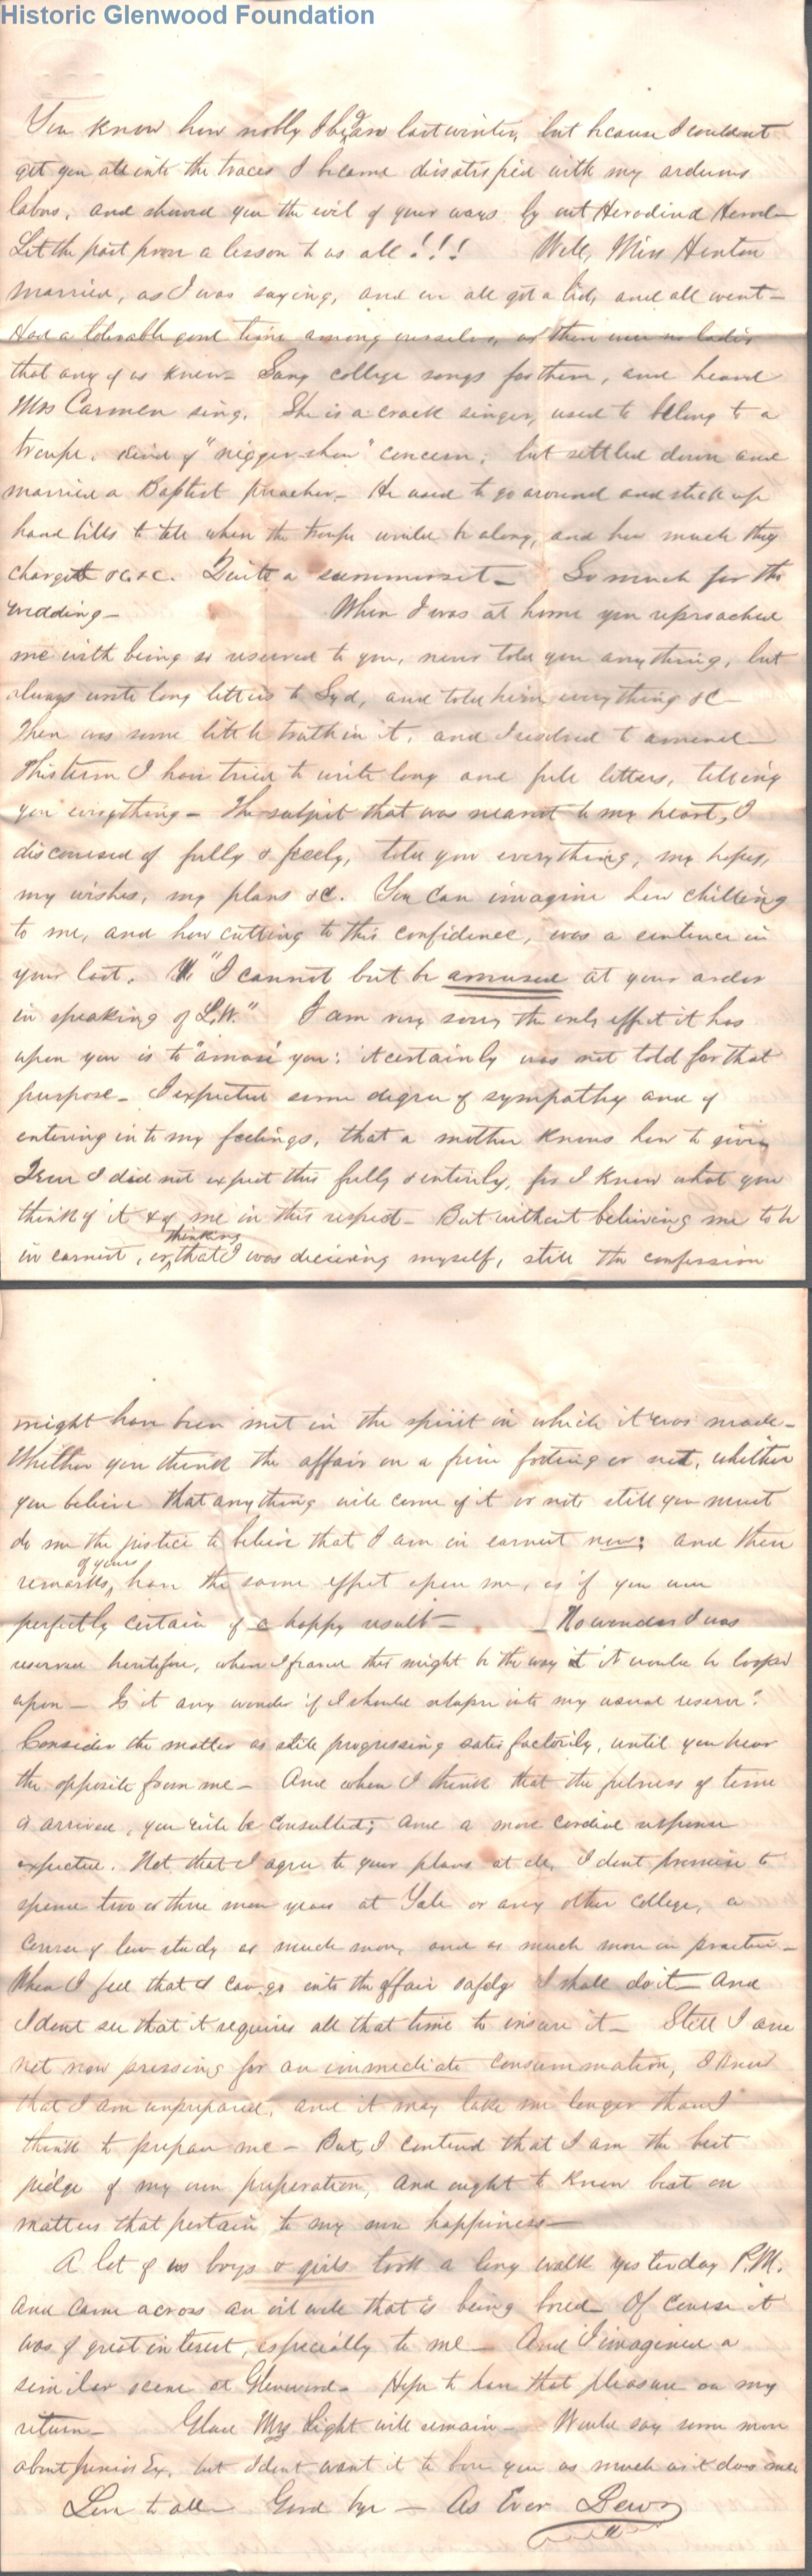 Historic Glenwood Foundation
You know how nobly I began last winter, but because I couldent
get you all into the traces I became dissatisfied with my arduous
labors, and showed you the evil of your ways by out Herodind Herod—
Let the past prove a lesson to us all!!! Well, Miss Henton
married, as I was saying, and we all got a bid, and all went—
Had a tolerable good time among ourselves, as there were no ladies
that any of us knew— Sang college songs for them, and heard
Mrs Carmen sing. She is a crack singer, used to belong to a
troupe, kind of "nigger-show" concern; but settled down and
married a Baptist preacher— He used to go around and stick up
hand bills to tell when the troupe would be along, and how much they
charged &c &c. Quite a summerset— So much for the
wedding— When I was at home you reproached
me with being so reserved to you, never told you anything, but
always wrote long letters to Syd, and told him everything &c—
There was some little truth in it, and I resolved to amend—
This term I have tried to write long and full letters, telling
you everything— The subject that was nearest to my heart, I
discoursed of fully & freely, told you everything, my hopes,
my wishes, my plans &c. You can imagine how chilling
to me, and how cutting to this confidence, was a sentence in
your last. "I cannot but be amused at your ardor
in speaking of L.W." I am very sorry the only effect it has
upon you is to "amuse" you: it certainly was not told for that
purpose— I expected some degree of sympathy and of
entering into my feelings, that a mother knows how to give
True I did not expect this fully & entirely, for I knew what you
think of it & of me in this respect— But without believing me to be
in earnest, or thinking that I was deceiving myself, still the confession
might have been met in the spirit in which it was made—
Whether you think the affair on a firm footing or not, whether
you believe that anything will come of it or not still you must
do me the justice to believe that I am in earnest now; and these
remarks of yours, have the same effect upon me, as if you were
perfectly certain of a happy result— — No wonder I was
reserved heretofore, when I feared this might be the way it would be looked
upon— Is it any wonder if I should relapse into my usual reserve?
Consider the matter as still progressing satisfactorily, until you hear
the opposite from me— And when I think that the fulness of time
is arrived, you will be consulted; and a more cordial response
expected. Not that I agree to your plans at all, I dont promise to
spend two or three more years at Yale or any other college, a
course of law study as much more, and as much more in practice—
When I feel that I can go into the affair safely I shall do it— And
I dont see that it requires all that time to insure it— Still I am
not now pressing for an immediate consummation, I know
that I am unprepared, and it may take me longer than I
think to prepare me— But, I contend that I am the best
judge of my own preparation, and ought to know best on
matters that pertain to my own happiness—
A lot of us boys & girls took a long walk yesterday P.M.
and came across an oil well that is being bored— Of course it
was of great interest, especially to me— And I imagined a
similar scene at Glenwood— Hope to have that pleasure on my
return— Glad Mrs Light will remain— Would say some more
about Junior Ex, but I dont want it to bore you as much as it does me
Love to all— Good bye— As Ever Lewis